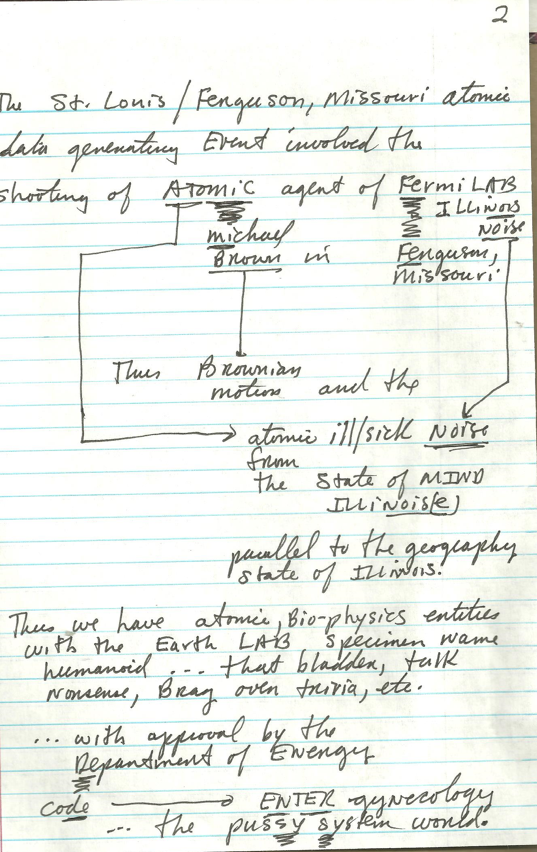 2
The St. Louis / Ferguson, Missouri atomic
data generating Event involved the
shooting of ATOMIC agent of FermiLAB
ILLINOIS
NOISE
michael
Brown in Ferguson,
Missouri
Thus Brownian
motion and the
atomic ill/sick NOISE
from
the State of MIND
ILLINOIS(e)
parallel to the geography
state of ILLINOIS.
Thus we have atomic, Bio-physics entities
with the Earth LAB specimen name
humanoid ... that bladder, talk
nonsense, Brag over trivia, etc.
... with approval by the
Department of Energy
code ENTER-gynecology
... the pussy system world.